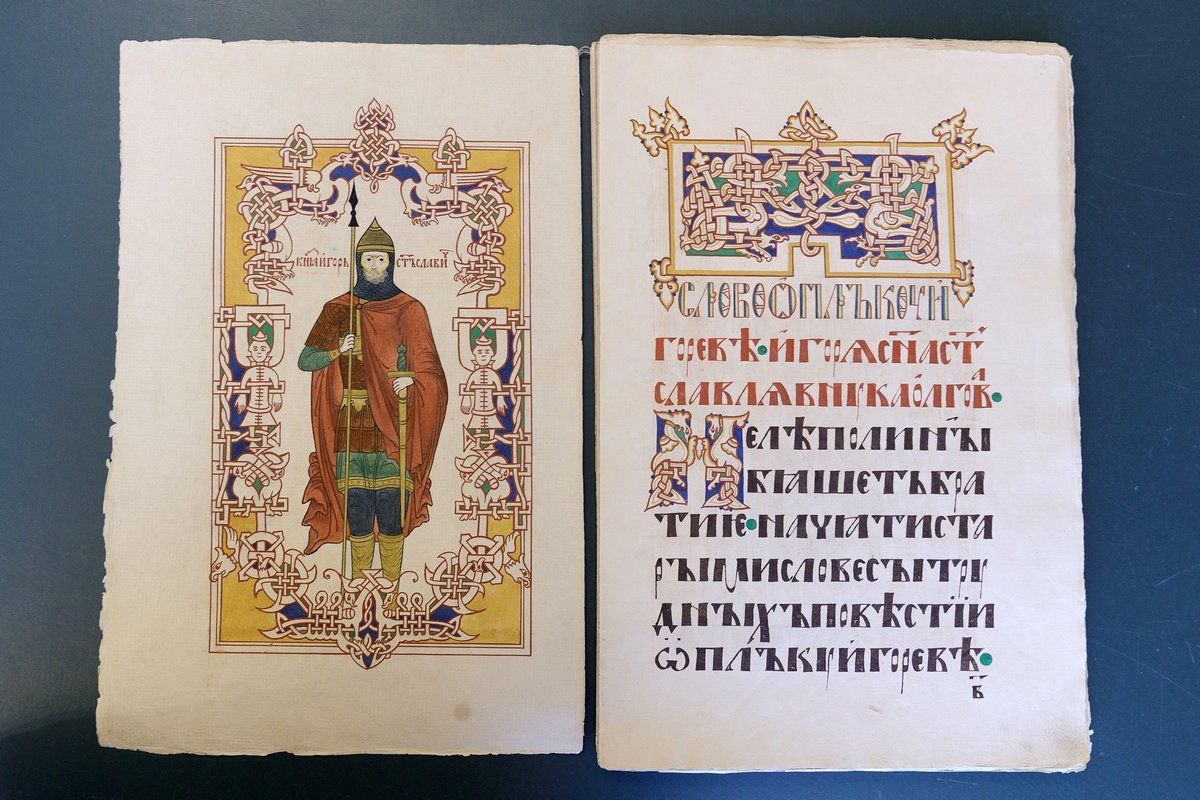 кн҃ѧ и҆горь ст҃ъславич
словоѡплъкоуи
горевѣ • и҆горѧсн҃аст҃
славлѧвнꙋкаолгова •
нелѣполинꙑ
бѧшетьбра
тиѥ • начѧтиста
рꙑмисловесꙑтрꙋ
днꙑхъповѣстїи
ѡплъкꙋи҆горевѣ •
в҃